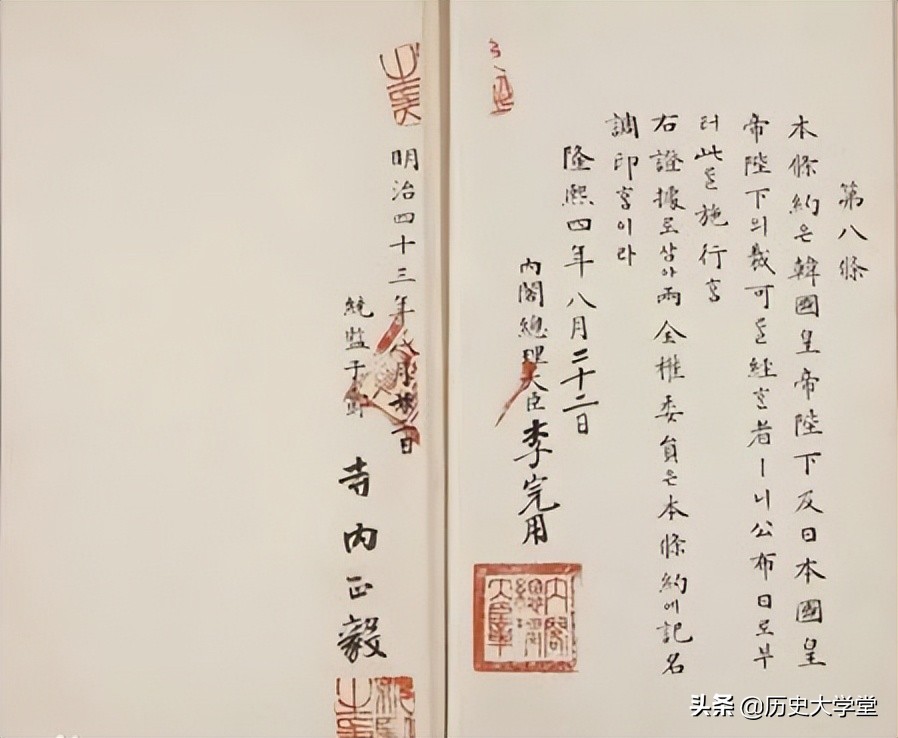 第八條
本條約은韓國皇帝陛下及日本國皇
帝陛下의裁可을經ᄒᆞᆫ者ㅣ니公布日로부
터此을施行ᄒᆞᆷ
右證據로삼아兩全權委員은本條約에記名
調印ᄒᆞᆷ이라
隆熙四年八月二十二日
內閣總理大臣李完用
內閣總理大臣章
明治四十三年八月二十二日
統監子爵
寺內正毅
头条 @历史大学堂